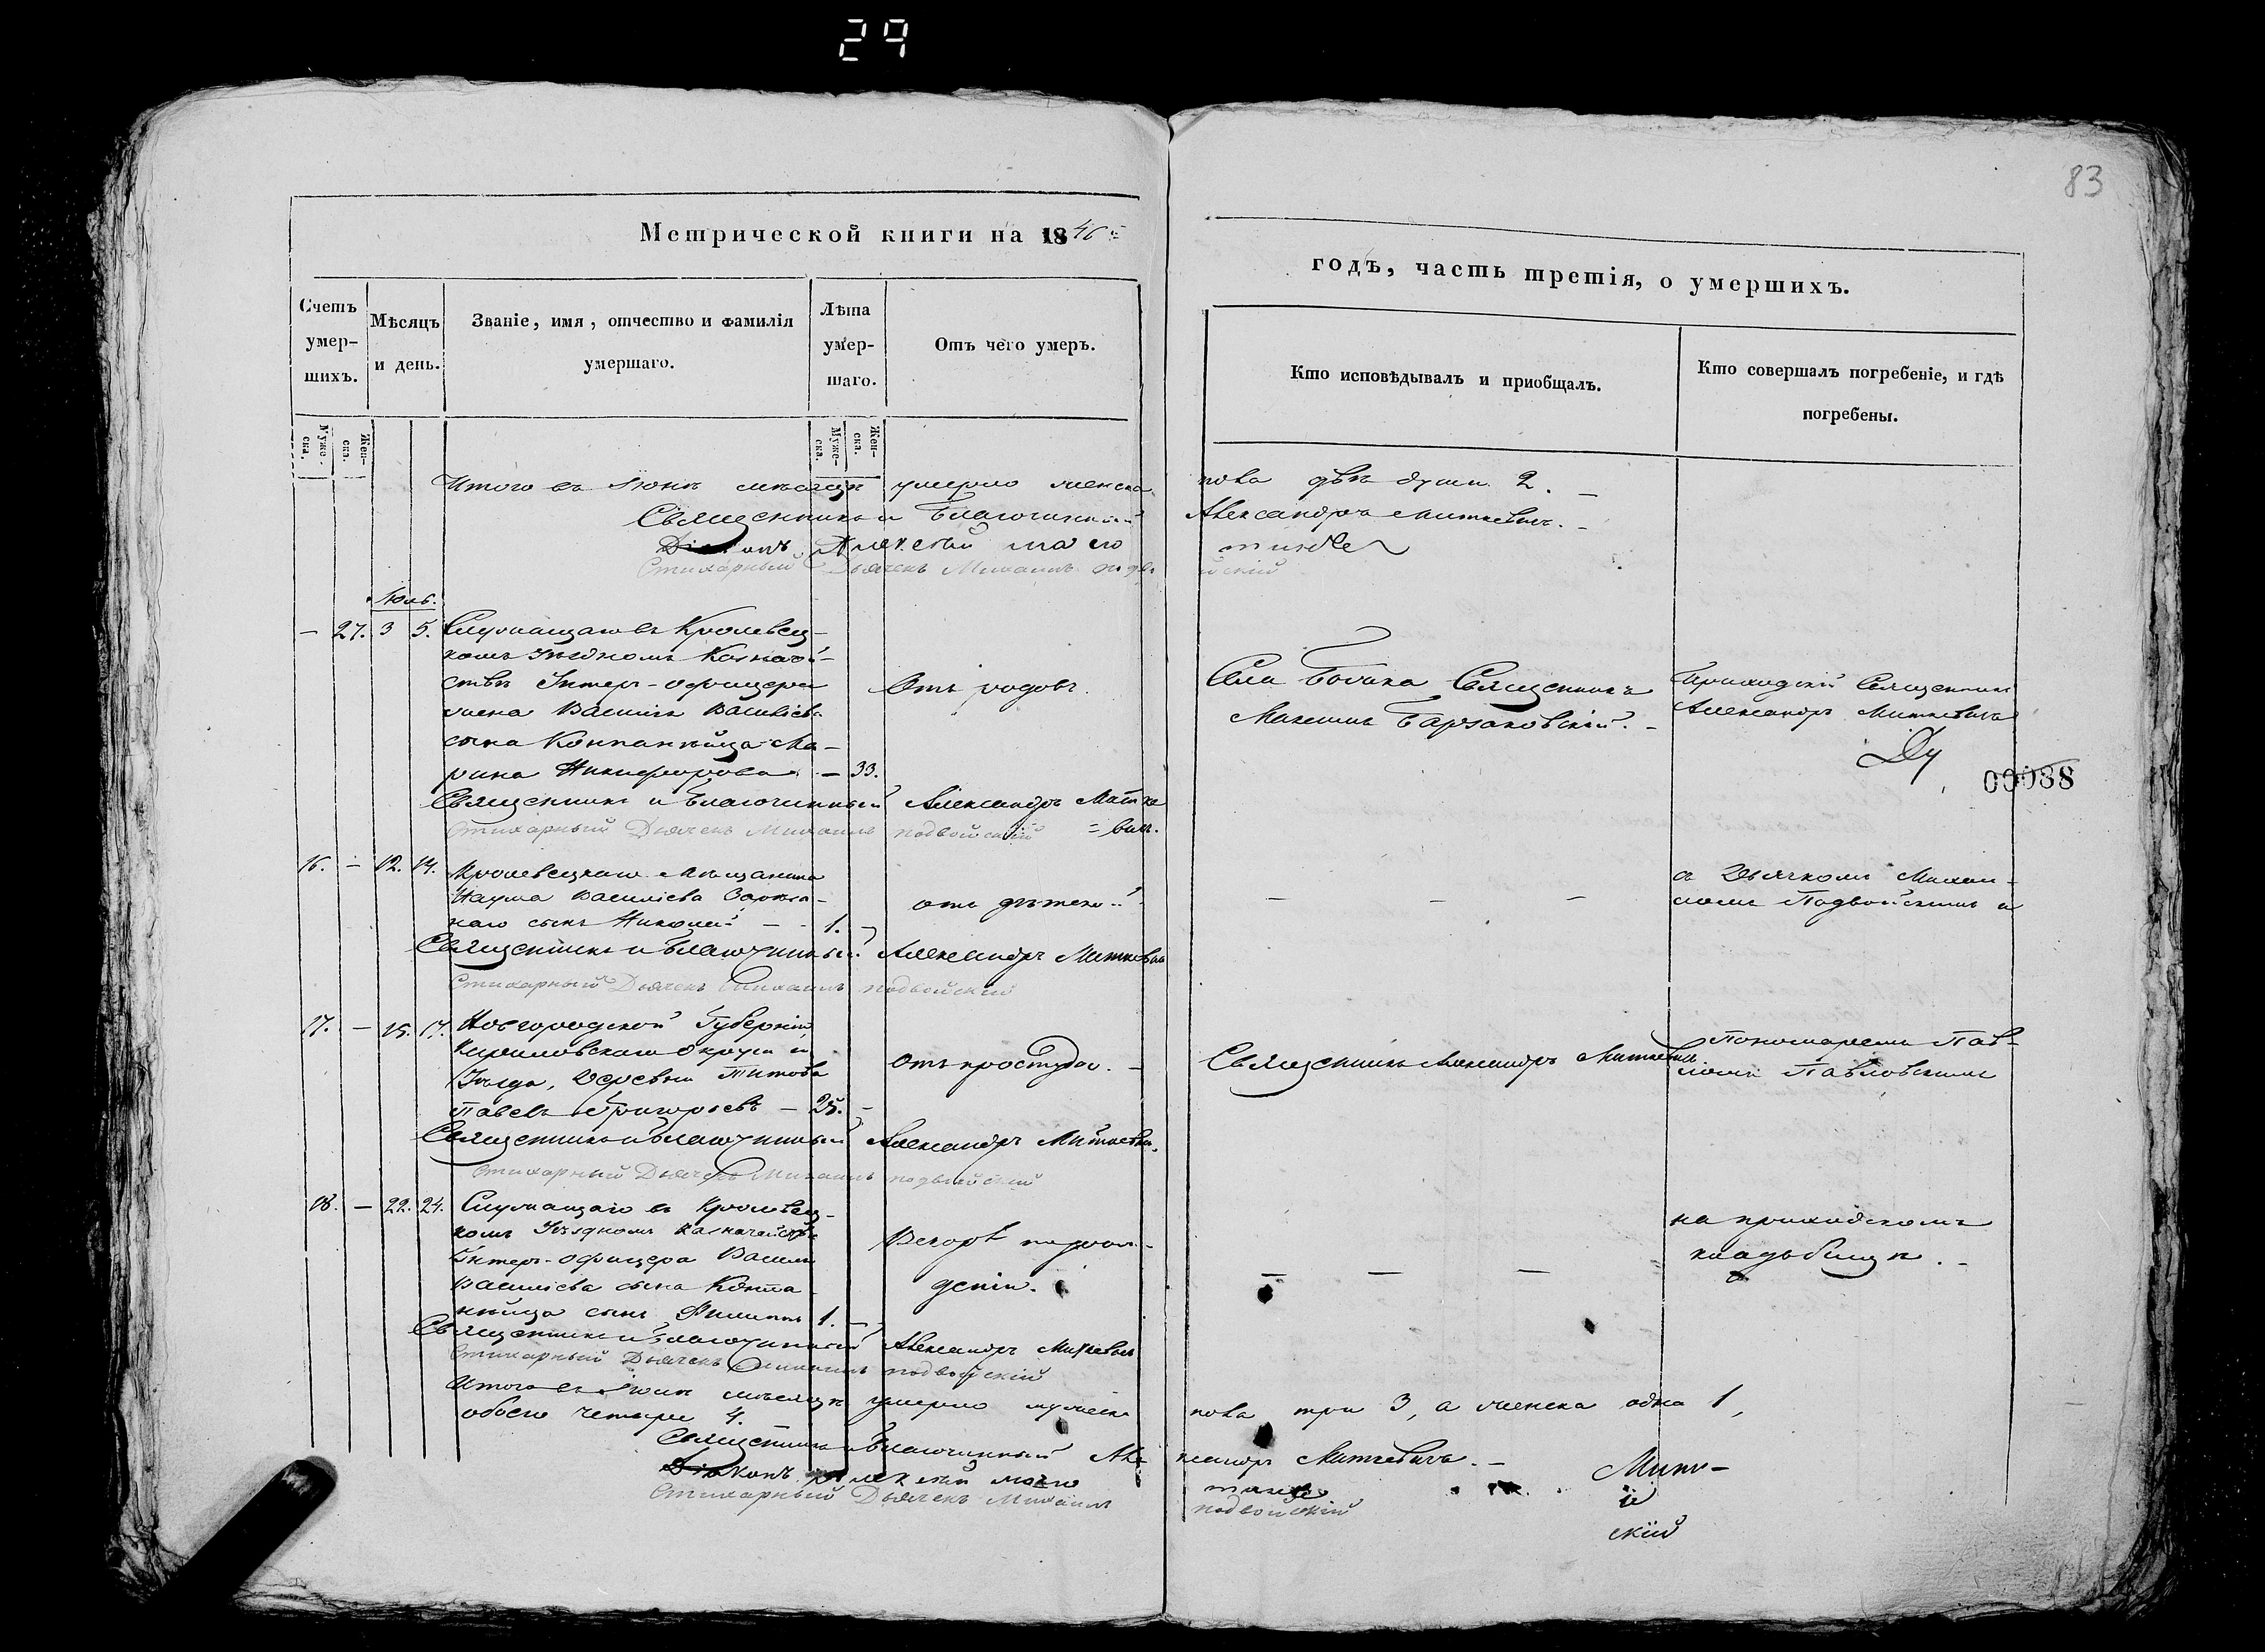 29
83
Метрической книги на 1846
годъ, часть третія, о умершихъ.
Счетъ умер-шихъ.
Мѣсяцъ и день.
Званіе, имя, отчество и фамилія умершаго.
Лѣта умер-шаго.
Отъ чего умеръ.
Кто исповѣдывалъ и приобщалъ.
Кто совершалъ погребеніе, и гдѣ погребены.
Муже-ска.
Жен-ска.
Муже-ска.
Жен-ска.
Итого въ Іюнѣ мѣсяцѣ умерло женска пола двѣ души 2. —
Священникъ и Благочинный Александръ Миткевичъ. —
Діаконъ Алексѣй
Стихарный Дьячекъ Михаилъ Подвойскій
Іюль.
— 27. 3 5. Служащаго въ Кролевец-
комъ Уѣздномъ Казначей-
ствѣ Унтеръ-офицера
жена Василія Васильева
сына Компанѣйца Ма-
рина Никифорова — 33.
Отъ родовъ.
Священникъ
Максимъ Барзаковскій. —
Приходскій Священникъ
Александръ Миткевичъ
00088
Священникъ и Благочинный Александръ Митке
= вичъ.
Стихарный Дьячекъ Михаилъ Подвойскій
16. — 12. 14. Кролевецкаго Мѣщанина
Наума Васильева
сынъ Николай — 1. —
отъ дѣтской
— — —
съ Дьячкомъ Михаи-
ломъ Подвойскимъ и
Священникъ и Благочинный Александръ Миткевичъ
Стихарный Дьячекъ Михаилъ Подвойскій
17. — 15. 17. Новгородской Губерніи
Кириловскаго округа и
Уѣзда, деревни Титова
Павелъ Григорьевъ — 25. —
Отъ простуды. —
Священникъ Александръ Миткевичъ
Пономаремъ Пав-
ломъ Павловскимъ
Священникъ и Благочинный Александръ Миткевичъ.
Стихарный Дьячекъ Михаилъ Подвойскій
18. — 22. 24. Служащаго въ Кролевец-
комъ Уѣздномъ Казначействѣ
Унтеръ-офицера Василія
Васильева сына Компа-
нѣйца сынъ Филиппъ 1. —
Вскорѣ по рож-
деніи.
— — —
на приходскомъ
кладбищѣ. —
Священникъ и Благочинный Александръ Миткевичъ
Стихарный Дьячекъ Михаилъ Подвойскій
Итого въ Іюлѣ мѣсяцѣ умерло мужеска пола три 3, а женска одна 1,
обоего четыре 4.
Священникъ и Благочинный Александръ Миткевичъ. —
Діаконъ Алексѣй
Стихарный Дьячекъ Михаилъ Подвойскій
скій